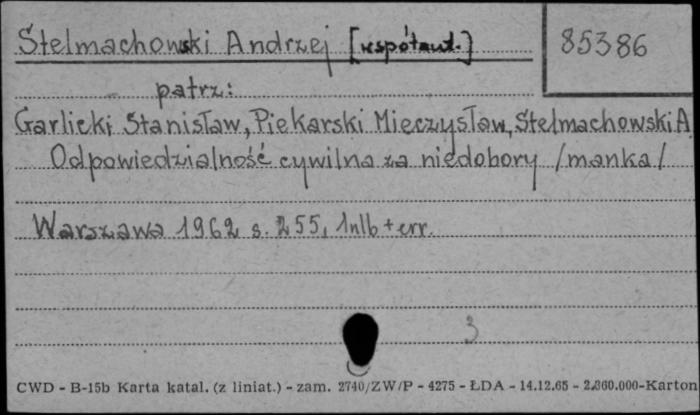 Stelmachowski Andrzej [współaut.]
85386
patrz:
Garlicki Stanisław, Piekarski Mieczysław, Stelmachowski A
Odpowiedzialność cywilna za niedobory /manka/
Warszawa 1962 s. 255, 1nlb + err.
3
CWD - B-15b Karta katal. (z liniat.) - zam. 2740/ZW/P - 4275 - ŁDA - 14.12.65 - 2.860.000-Karton